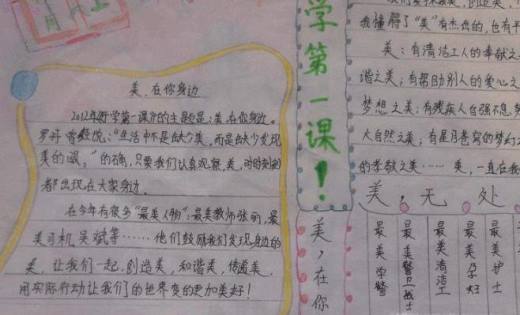 美,在你身边
2012年《开学第一课》的主题是:美,在你身边。
罗丹曾经说:"生活中不是缺少美,而是缺少发现
美的眼。"的确,只要我们认真观察,美,时时刻刻
都出现在大家身边。
在今年有很多"最美人物":最美教师张丽莉、最
美司机吴斌等……他们鼓励我们发现身边的
美,让我们一起,创造美,和谐美,传递美,
用实际行动让我们的世界变的更加美好!
学第一课!
美,在你
我懂得了"美"有杰出的,也有平
美:有清洁工人的奉献之
谐之美;有帮助别人的爱心之
梦想之美;有残疾人自强不息
大自然之美;有星月苍穹的梦幻之
的孝敬之美……美,一直在我
美,无处
最美学警
最美警卫战士
最美清洁工
最美孕妇
最美护士